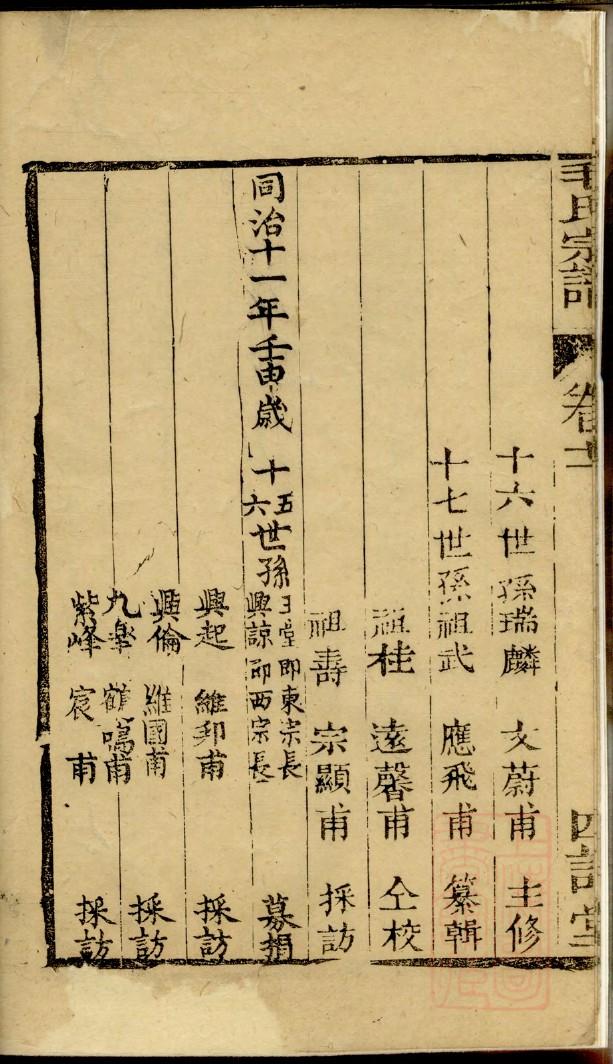 毛氏宗譜 卷十一 四訓堂
十六世孫瑞麟 文蔚甫 主修
十七世孫祖武 應飛甫 纂輯
祖桂 遠馨甫 仝校
祖壽 宗顯甫 採訪
同治十一年壬申歲 十五六世孫 玉堂即東宗長 興諒即西宗長 募捐
興起 維邦甫 採訪
興倫 維國甫
九皋 鶴鳴甫 採訪
紫峰 宸甫 採訪